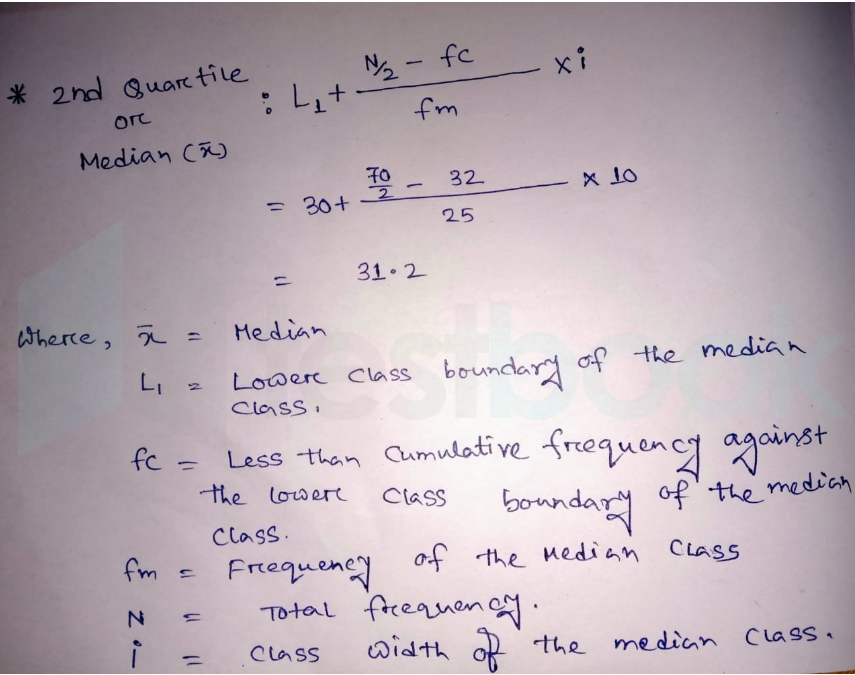 * 2nd Quartile or Median (x̄) : L₁ + (N/2 - fc)/fm × i
= 30 + (70/2 - 32)/25 × 10
= 31.2
Where, x̄ = Median
L₁ = Lower class boundary of the median
class.
fc = Less than cumulative frequency against
the lower class boundary of the median
class.
fm = Frequency of the Median Class
N = Total frequency.
i = class width of the median class.
testbook